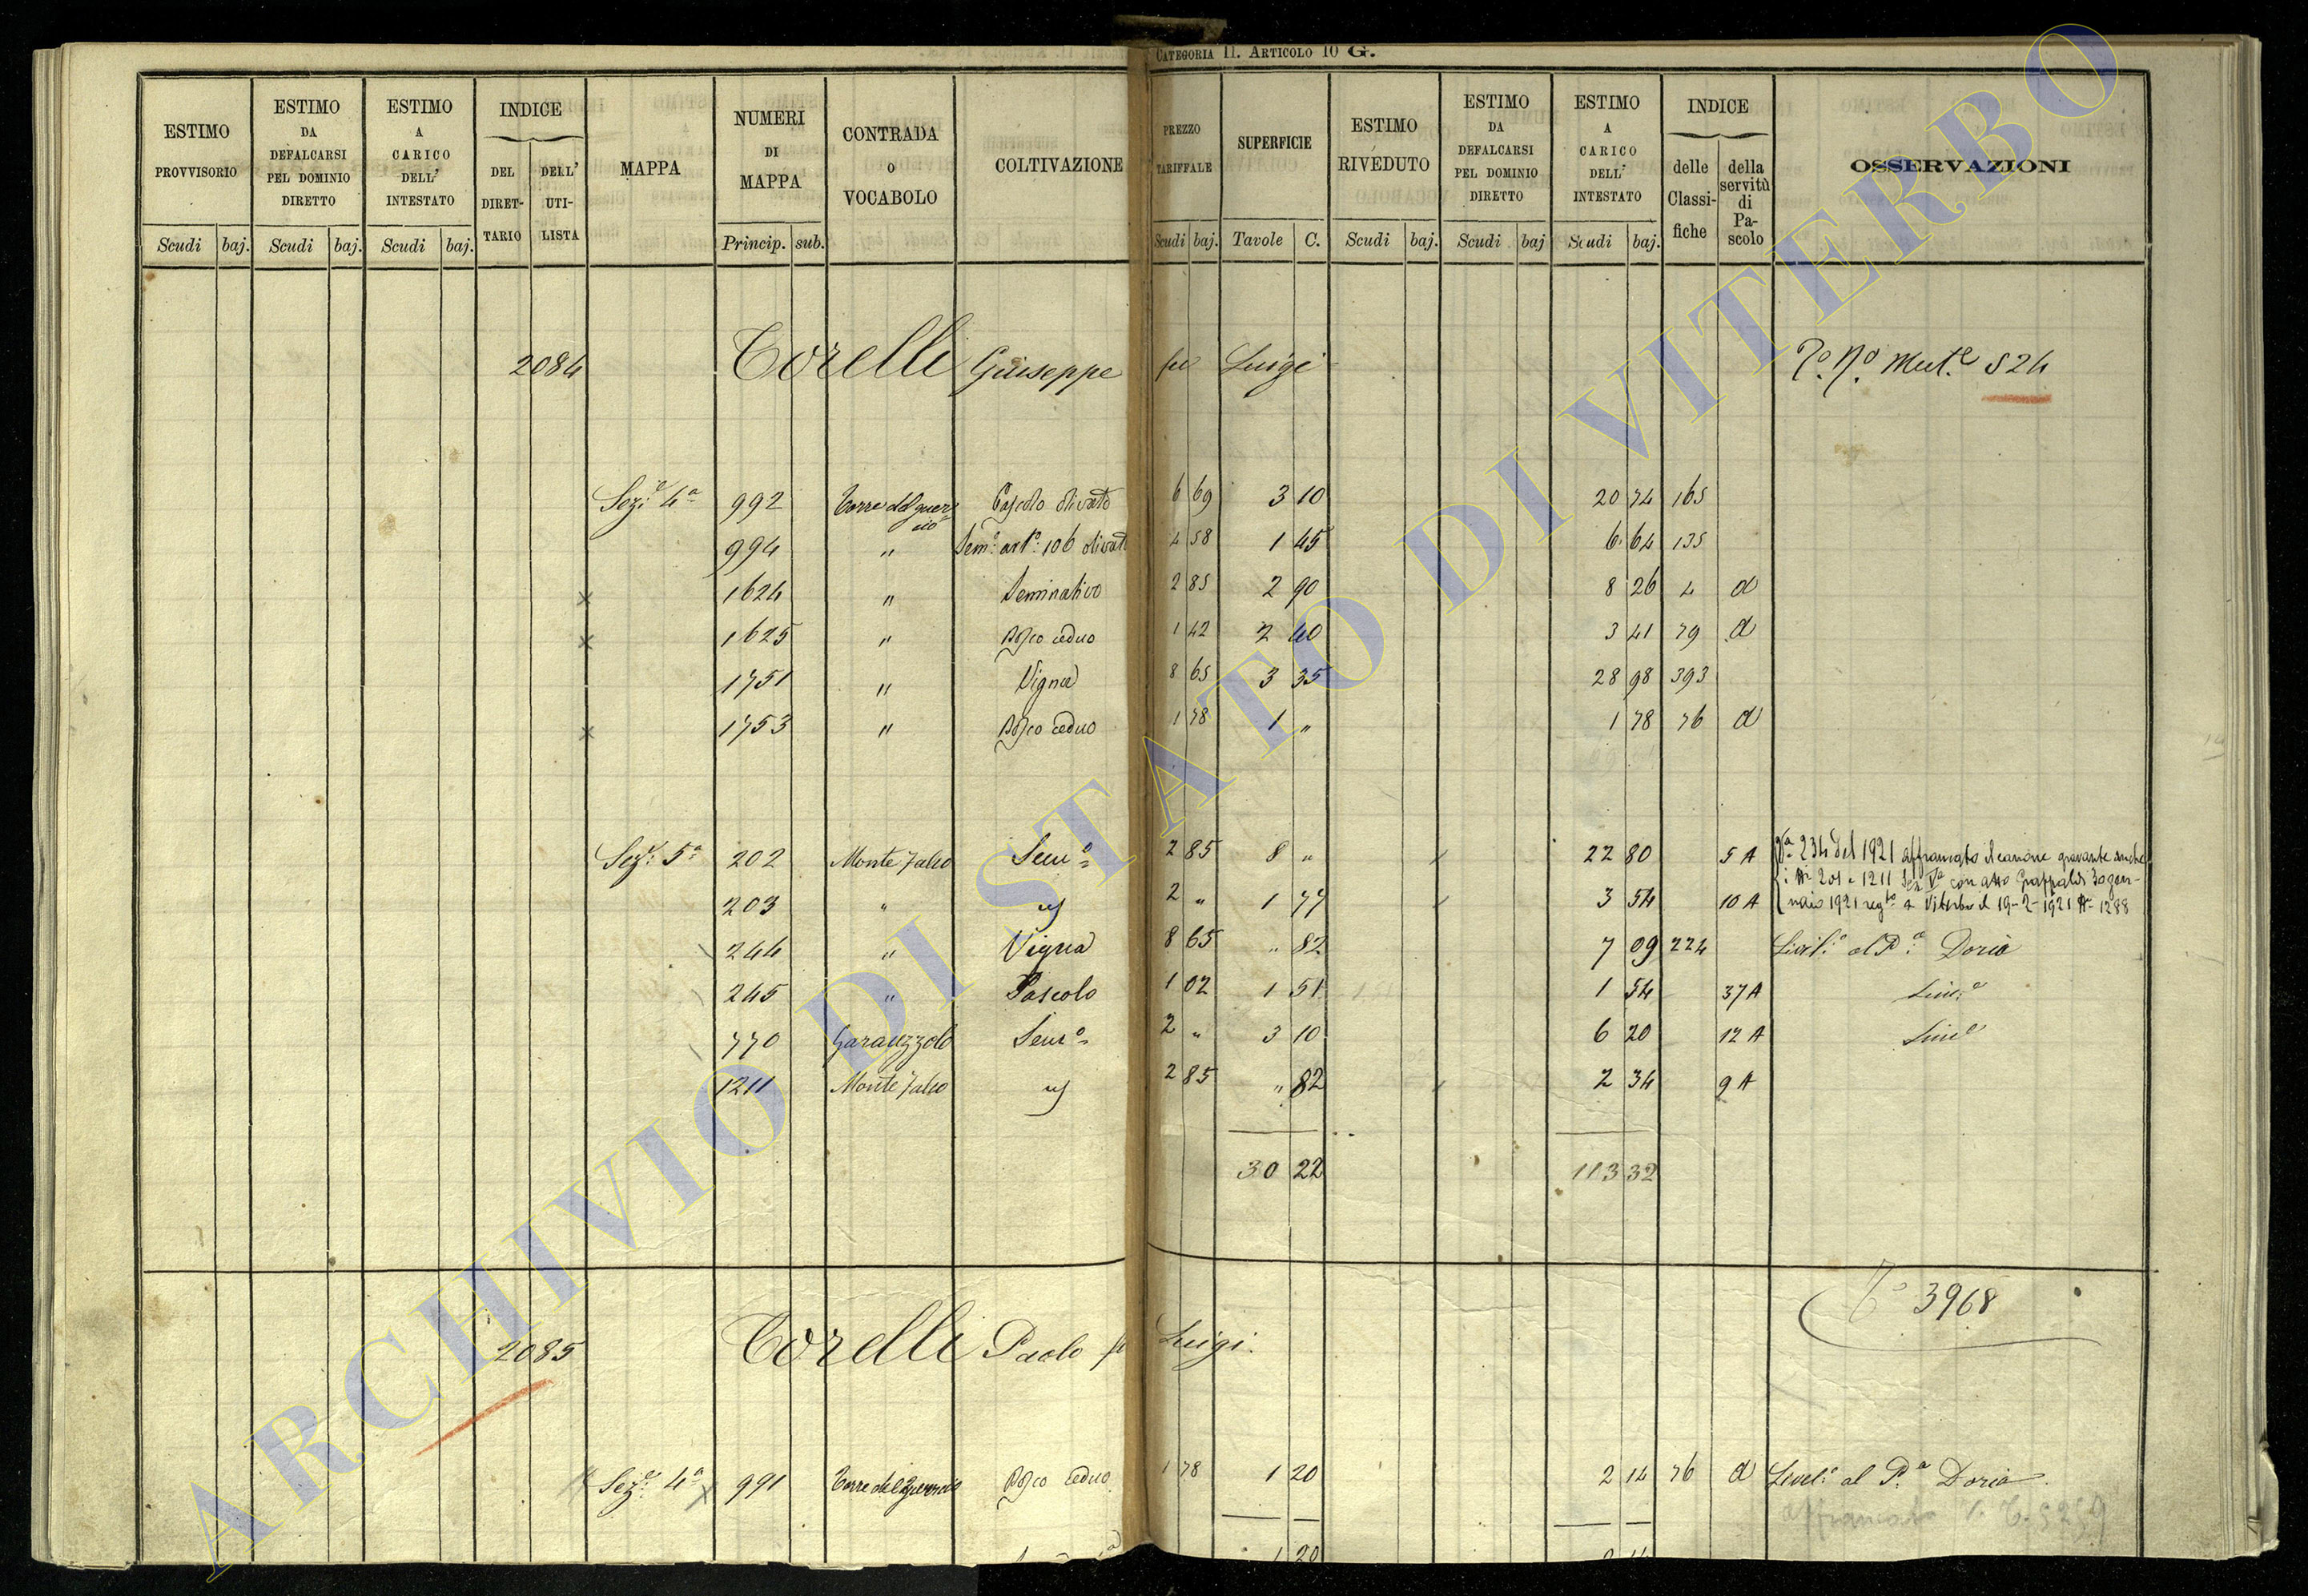 CATEGORIA II. ARTICOLO 10 G.
ESTIMO PROVVISORIO | ESTIMO DA DEFALCARSI PEL DOMINIO DIRETTO | ESTIMO A CARICO DELL' INTESTATO | INDICE DEL DIRETTARIO | DELL' UTILISTA | MAPPA | NUMERI DI MAPPA | CONTRADA O VOCABOLO | COLTIVAZIONE | PREZZO TARIFFALE | SUPERFICIE | ESTIMO RIVEDUTO | ESTIMO DA DEFALCARSI PEL DOMINIO DIRETTO | ESTIMO A CARICO DELL' INTESTATO | INDICE delle Classifiche | della servitù di Pascolo | OSSERVAZIONI
Scudi baj. | Scudi baj. | Scudi baj. | Princip. sub. | Scudi baj. | Tavole C. | Scudi baj. | Scudi baj | Scudi baj.
2084 Torelli Giuseppe fu Luigi Mut.e 524
Sez.e 4a 992 Torre del guercio Pascolo olivato 6 69 3 10 20 74 165
994 " Sem.o art.o 106 olivato 4 58 1 45 6 64 135
x 1624 " Seminativo 2 85 2 90 8 26 4 d
x 1625 " Bosco ceduo 1 42 2 40 3 41 79 d
1751 " Vigna 8 65 3 35 28 98 393
x 1753 " Bosco ceduo 1 78 1 " 1 78 76 d
Sez.e 5a 202 Monte Falco Sem.o 2 85 8 " 22 80 5 A
234 del 1921 affrancato il canone gravante anche
i Nri 201 e 1211 Sez Va con atto 30 gen-
naio 1921 regto a Viterbo il 19-2-1921 N 1288
203 " " 2 " 1 77 3 54 10 A
244 " Vigna 8 65 " 82 7 09 224 Livel.o al P.e Doria
245 " Pascolo 1 02 1 51 1 54 37 A Liv.o
770 Sem.o 2 " 3 10 6 20 12 A Liv.o
1211 Monte Falco " 2 85 " 82 2 34 9 A
30 22 113 32
3968
2085 Torelli Paolo fu Luigi.
Sez.e 4a x 991 Torre del guercio Bosco ceduo 1 78 1 20 2 14 76 d Livel.o al P.e Doria
affrancato
1 20 2 14
ARCHIVIO DI STATO DI VITERBO